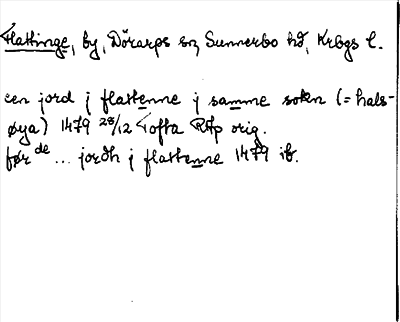 Flattinge, by, Dörarps sn, Sunnerbo hd, Krbgs l.
een jord j flattenne j samme soken (= hals-
øya) 1479 28/12 Tofta RAp orig.
før de ... jordh j flattenne 1479 ib.